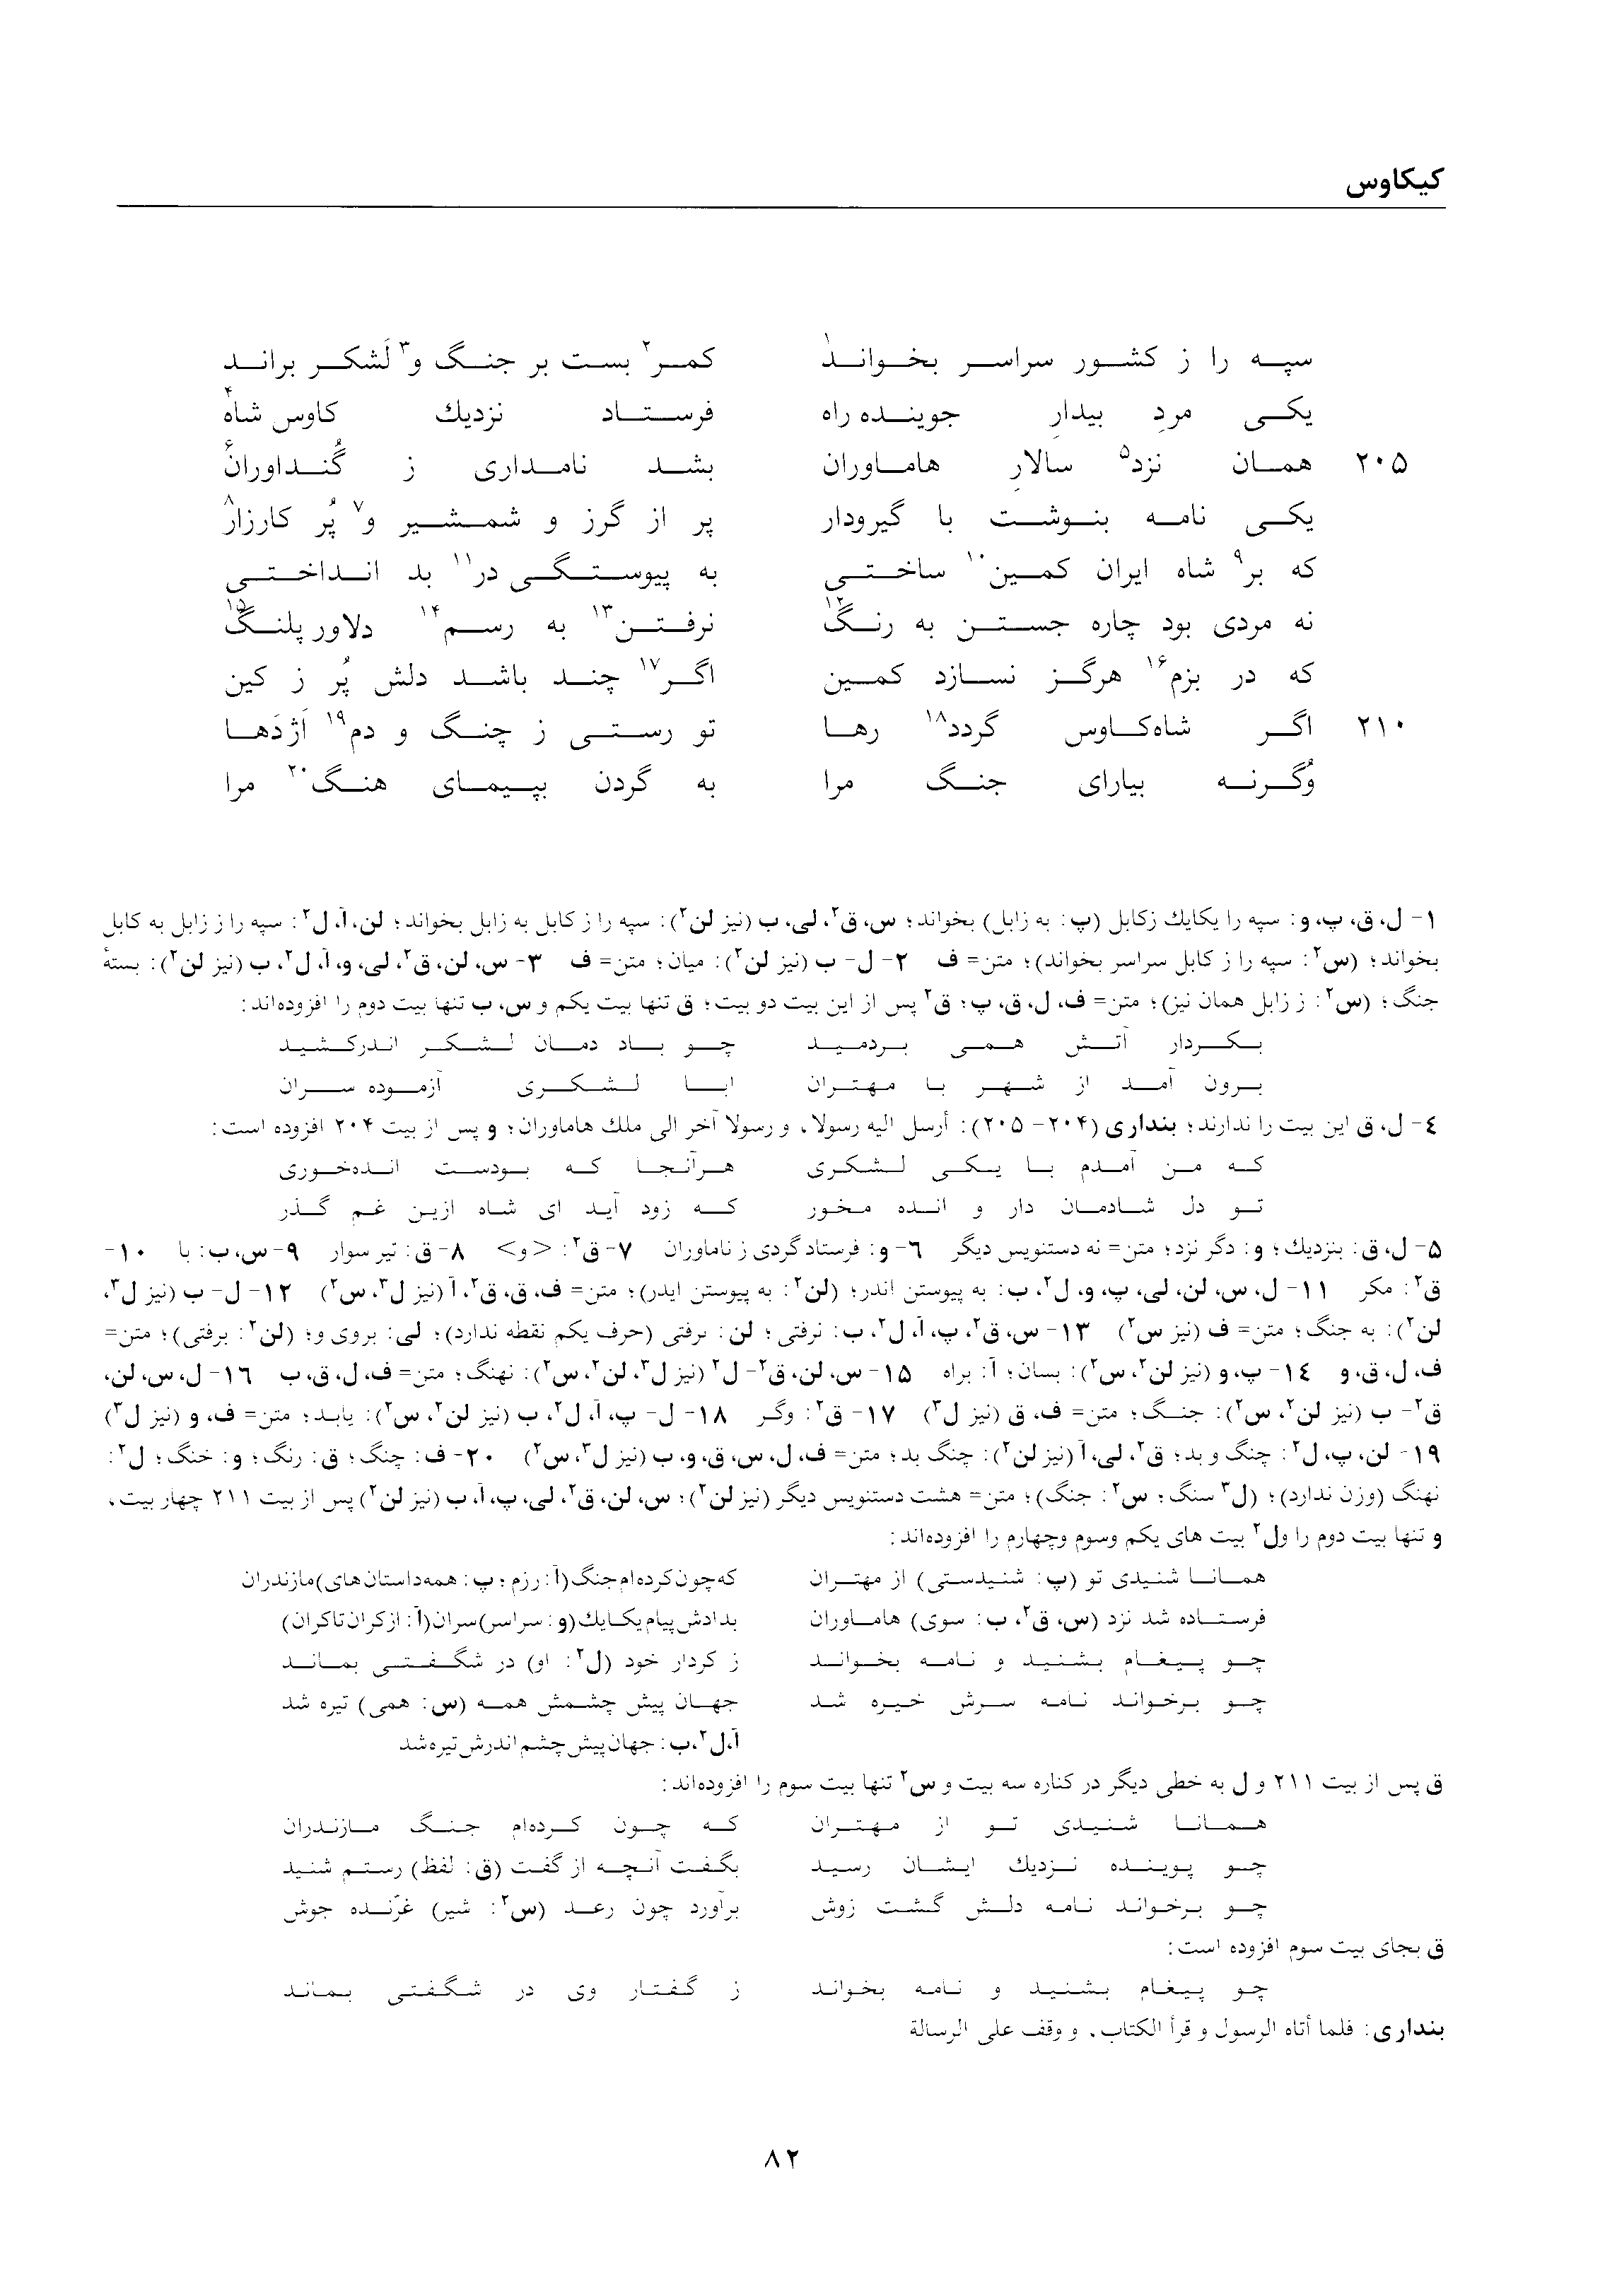 کیکاوس
سپه را ز کشور سراسر بخواند۱ کمر۲ بست بر جنگ و۳ لَشکر براند
یکی مردِ بیدارِ جوینده راه فرستاد نزدیك کاوس شاه۴
۲۰۵ همان نزد۵ سالارِ هاماوران بشد نامداری ز کُنداوران۶
یکی نامه بنوشت با گیرودار پر از گرز و شمشیر و۷ پُر کارزار۸
که بر۹ شاه ایران کمین۱۰ ساختی به پیوستگی در۱۱ بد انداختی
نه مردی بود چاره جستن به رنگ۱۲ نرفتن۱۳ به رسم۱۴ دلاور پلنگ۱۵
که در بزم۱۶ هرگز نسازد کمین اگر۱۷ چند باشد دلش پُر ز کین
۲۱۰ اگر شاه‌کاوس گردد۱۸ رها تو رستی ز چنگ و دم۱۹ اَژدَها
وُگرنه بیارای جنگ مرا به گردن بپیمای هنگ۲۰ مرا
۱- ل، ق، پ، و: سپه را یکایك زکابل (پ: به زابل) بخواند؛ س، ق۲، لی، ب (نیز لن۲): سپه را ز کابل به زابل بخواند؛ لن، آ، ل۲: سپه را ز زابل به کابل
بخواند؛ (س۲: سپه را ز کابل سراسر بخواند)؛ متن= ف ۲- ل- ب (نیز لن۲): میان؛ متن= ف ۳- س، لن، ق۲، لی، و، آ، ل۲، ب (نیز لن۲): بستهٔ
جنگ؛ (س۲: ز زابل همان نیز)؛ متن= ف، ل، ق، پ؛ ق۲ پس از این بیت دو بیت؛ ق تنها بیت یکم و س، ب تنها بیت دوم را افزوده‌اند:
بکردار آتش همی بردمید چو باد دمان لشکر اندرکشید
برون آمد از شهر با مهتران ابا لشکری آزموده سران
۴- ل، ق این بیت را ندارند؛ بنداری (۲۰۴- ۲۰۵): أرسل الیه رسولا، و رسولا آخر الی ملك هاماوران؛ و پس از بیت ۲۰۴ افزوده است:
که من آمدم با یکی لشکری هرآنجا که بودست انده‌خوری
تو دل شادمان دار و انده مخور که زود آید ای شاه ازین غم گذر
۵- ل، ق: بنزدیك؛ و: دگر نزد؛ متن= نه دستنویس دیگر ۶- و: فرستاد گردی ز ناماوران ۷- ق۲: <و> ۸- ق: تیر سوار ۹- س، ب: با ۱۰-
ق۲: مکر ۱۱- ل، س، لن، لی، پ، و، ل۲، ب: به پیوستن اندر؛ (لن۲: به پیوستن ایدر)؛ متن= ف، ق، ق۲، آ (نیز ل۳، س۲) ۱۲- ل- ب (نیز ل۳،
لن۲): به جنگ؛ متن= ف (نیز س۲) ۱۳- س، ق۲، پ، آ، ل۲، ب: نرفتی؛ لن: ىرفتی (حرف یکم نقطه ندارد)؛ لی: بروی و؛ (لن۲: برفتی)؛ متن=
ف، ل، ق، و ۱۴- پ، و (نیز لن۲، س۲): بسان؛ آ: براه ۱۵- س، لن، ق۲- ل۲ (نیز ل۳، لن۲، س۲): نهنگ؛ متن= ف، ل، ق، ب ۱۶- ل، س، لن،
ق۲- ب (نیز لن۲، س۲): جنگ؛ متن= ف، ق (نیز ل۳) ۱۷- ق۲: وگر ۱۸- ل- پ، آ، ل۲، ب (نیز لن۲، س۲): یابد؛ متن= ف، و (نیز ل۳)
۱۹- لن، پ، ل۲: چنگ و بد؛ ق۲، لی، آ (نیز لن۲): چنگ بد؛ متن= ف، ل، س، ق، و، ب (نیز ل۳، س۲) ۲۰- ف: چنگ؛ ق: رنگ؛ و: خنگ؛ ل۲:
نهنگ (وزن ندارد)؛ (ل۳ سنگ؛ س۲: جنگ)؛ متن= هشت دستنویس دیگر (نیز لن۲)؛ س، لن، ق۲، لی، پ، آ، ب (نیز لن۲) پس از بیت ۲۱۱ چهار بیت،
و تنها بیت دوم را ول۲ بیت های یکم وسوم وچهارم را افزوده‌اند:
همانا شنیدی تو (پ: شنیدستی) از مهتران که‌چون‌کرده‌ام‌جنگ (آ: رزم؛ پ: همه‌داستان‌های) مازندران
فرستاده شد نزد (س، ق۲، ب: سوی) هاماوران بدادش پیام یکایك (و: سراسر) سران (آ: ازکران‌تاکران)
چو پیغام بشنید و نامه بخواند ز کردار خود (ل۲: او) در شگفتی بماند
چو برخواند نامه سرش خیره شد جهان پیش چشمش همه (س: همی) تیره شد
آ، ل۲، ب: جهان پیش چشم اندرش تیره شد
ق پس از بیت ۲۱۱ و ل به خطی دیگر در کناره سه بیت و س۲ تنها بیت سوم را افزوده‌اند:
همانا شنیدی تو از مهتران که چون کرده‌ام جنگ مازندران
چو پوینده نزدیك ایشان رسید بگفت آنچه از گفت (ق: لفظ) رستم شنید
چو برخواند نامه دلش گشت زوش برآورد چون رعد (س۲: شیر) غرّنده جوش
ق بجای بیت سوم افزوده است:
چو پیغام بشنید و نامه بخواند ز گفتار وی در شگفتی بماند
بنداری: فلما أتاه الرسول و قرأ الکتاب، و وقف علی الرسالة
۸۲